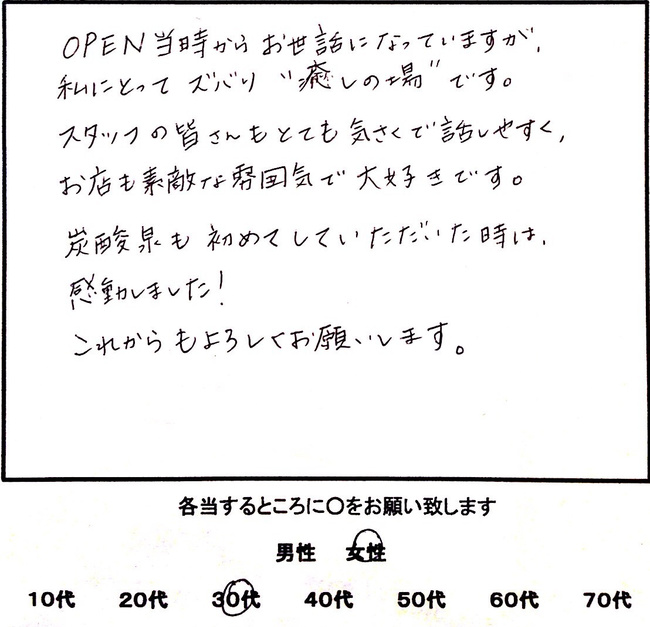 OPEN当時からお世話になっていますが、
私にとって ズバリ “癒しの場” です。
スタッフの皆さんもとても気さくで話しやすく,
お店も素敵な雰囲気で大好きです。
炭酸泉も初めてしていただいた時は、
感動しました!
これからもよろしくお願いします。
各当するところに〇をお願い致します
男性 女性
10代 20代 30代 40代 50代 60代 70代